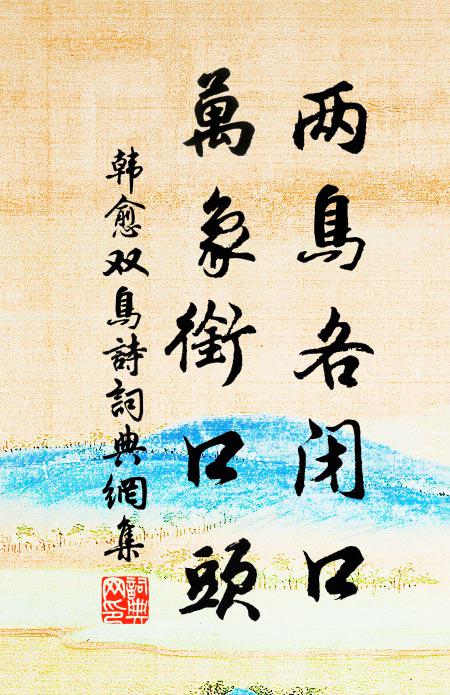 两鳥各闭口
萬象銜口頭
韩愈双鳥詩詞典網集
詞典网印